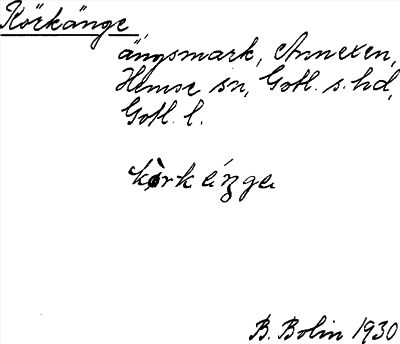 Körkänge,
ängsmark, Annexen,
Hemse sn, Gotl. s. hd,
Gotl. l.
B. Bolin 1930